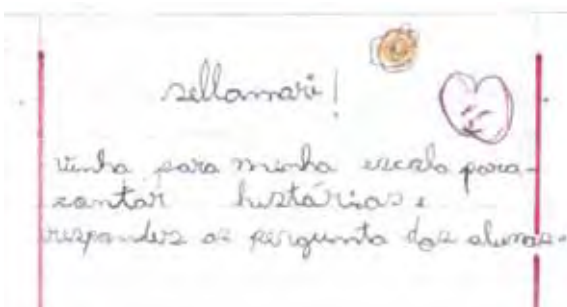 sellamari!
vinha para minha escola para
contar histórias e
responder as pergunta dos alunos.